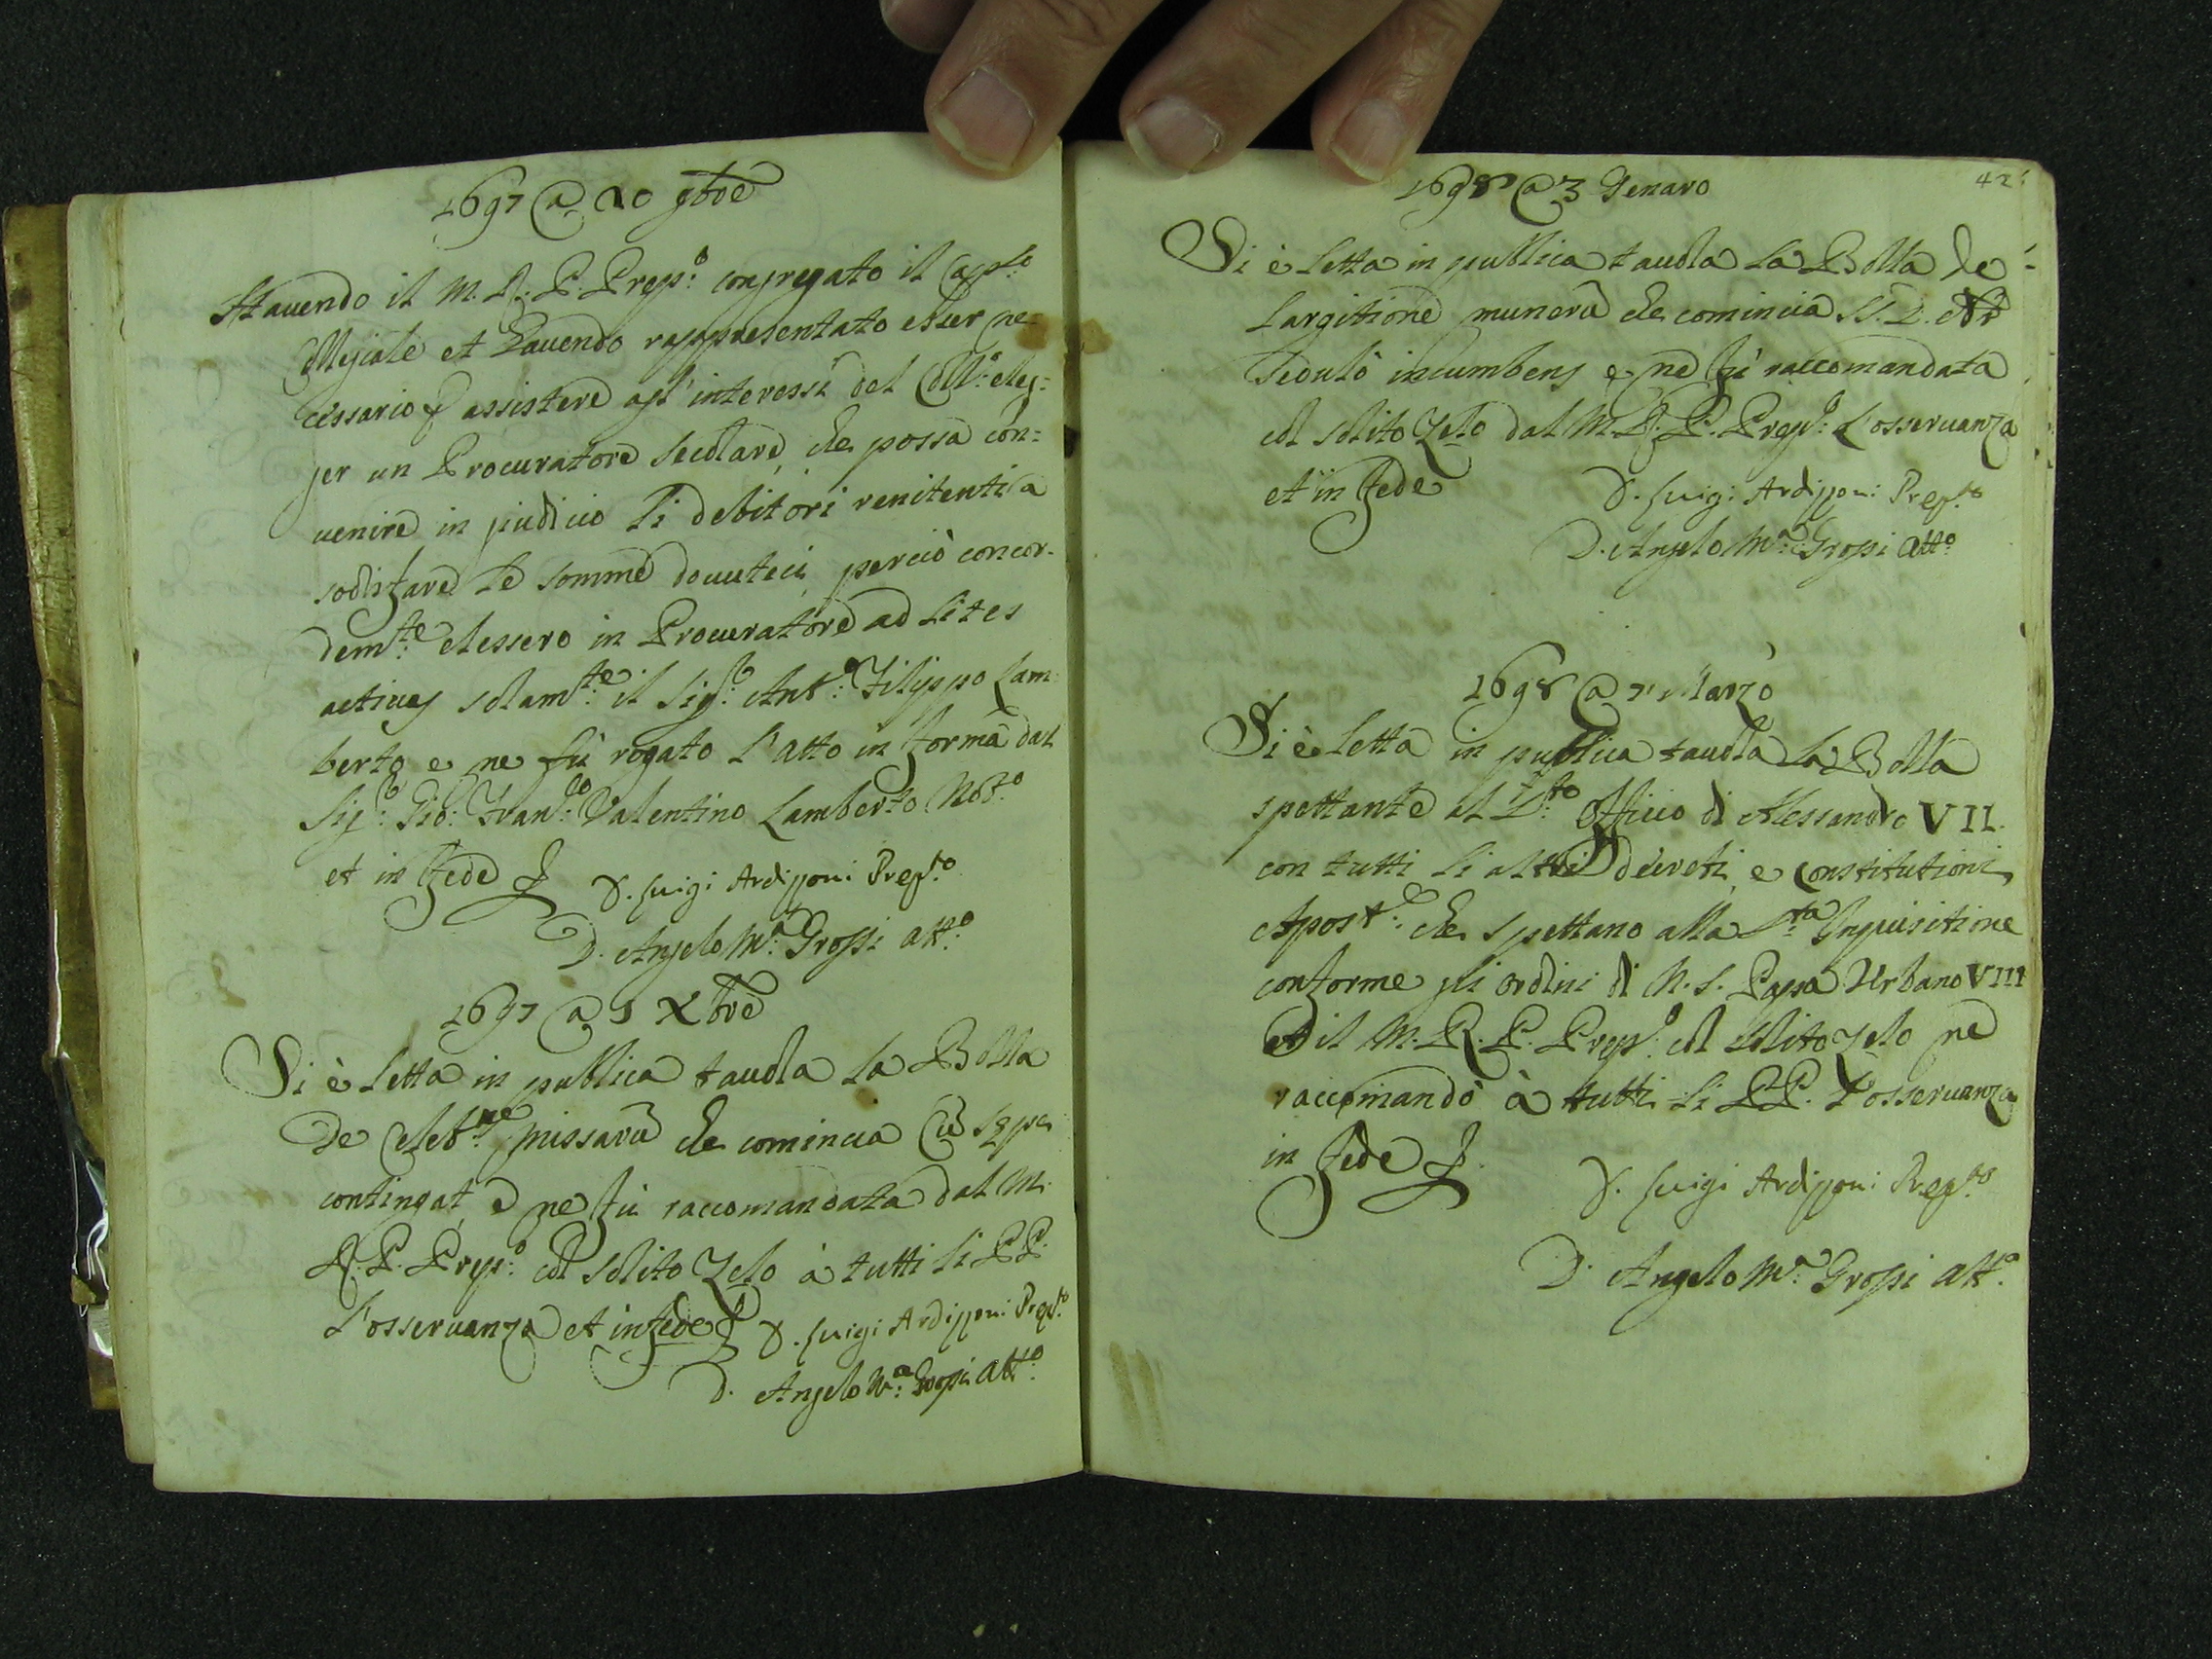 1697 @ 20 9bre
Havendo il M. R. P. Prepº: congregato il Caplo
Collegiale et havendo rappresentato esser ne-
cessario p assistere agl'interessi del Collº: eleg=
ger un Procuratore secolare, che possa con=
venire in giudicio li debitori renitenti a
sodisfare le somme douuteci, perciò concor-
demte: elessero in Procuratore ad lites
actiues solamte: il Sigr: Antº: Filippo Lam
berto e ne fù rogato l'atto in forma dal
Sigr: Gio: Franco: Valentino Lamberto Notº
et in fede D. Luigi Ardizzoni Prepto
D. Angelo Ma: Grossi Attº
1697 @ 5 Xbre
Si è letta in publica tauola la Bolla
De Celebne missarū che comincia Cū sępe
contingat, e ne fù raccomandata dal M.
R. P. Prepº: col solito Zelo à tutti li PP.
l'osseruanza et in fede D. Luigi Ardizzoni Prepto
D. Angelo Ma: Grossi Attº
42
1698 @ 3 Genaro
Si è letta in publica tauola la Bolla de
Largitione munerū che comincia SS. D. Nr
sedulò incumbens e ne fù raccomandata
col solito Zelo dal M. R. P. Prepº: l'osseruanza
et in fede D. Luigi Ardizzoni Prepto
D. Angelo Ma: Grossi Attº
1698 @ 7 Marzo
Si è letta in publica tauola la Bolla
spettante al Sto: Officio di Alessandro VII.
con tutti li altri decreti, e constitutioni
Apostc: che spettano alla Sta Inquisitione
conforme gli ordini di N. S. Papa Urbano VIII
et il M. R. P. Prepº: col solito zelo ne
raccomandò à tutti li PP. l'osseruanza
in fede D. Luigi Ardizzoni Prepto
D. Angelo Ma: Grossi Attº